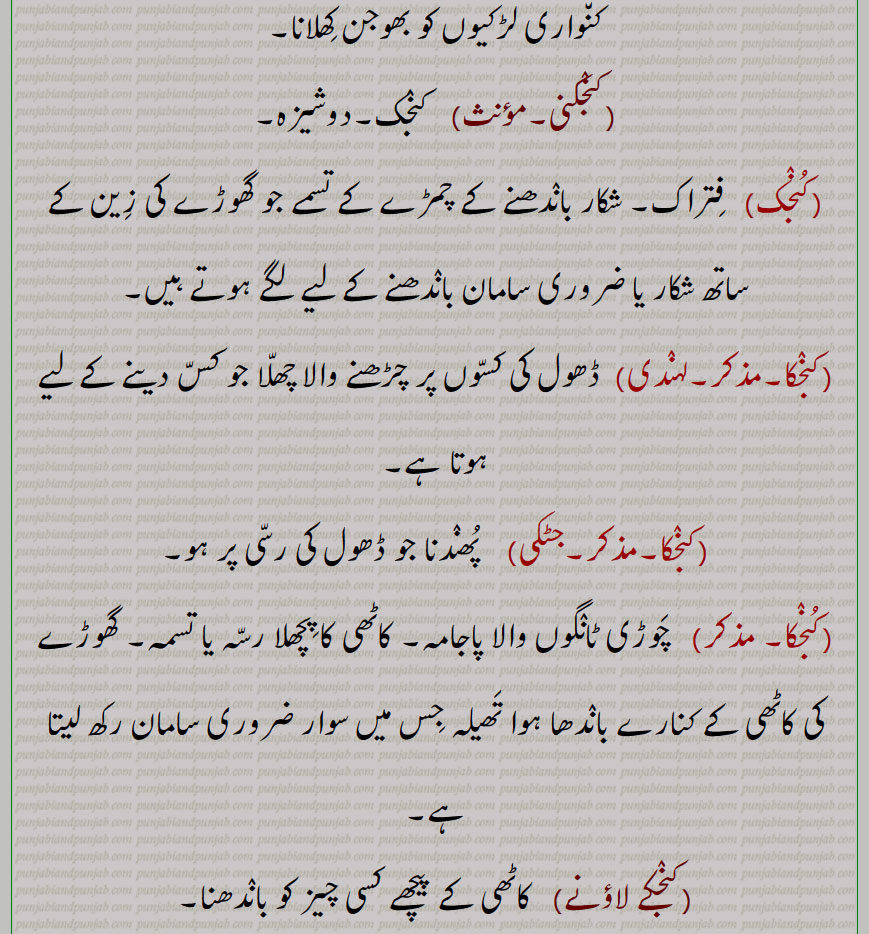 کنّواری لڑکیوں کو بھوجن کِھلانا۔
(کنْجکنی۔مؤنث) کنْجک۔دوشیزہ۔
(کُنْجک) فِتراک۔ شکار بانْدھنے کے چمڑے کے تسمے جو گھوڑے کی زِین کے
ساتھ شکار یا ضروری سامان بانْدھنے کے لیے لگے ہوتے ہیں۔
(کنْجکا۔مذکر۔لہنْدی) ڈھول کی کسّوں پر چڑھنے والا چھلّا جو کسّ دینے کے لیے
ہوتا ہے۔
(کنْجکا۔مذکر۔جٹکی) پُھنْدنا جو ڈھول کی رسّی پر ہو۔
(کُنْجکا۔ مذکر) چَوڑی ٹانْگوں والا پاجامہ۔ کاٹھی کا پِچھلا رسّہ یا تسمہ۔ گھوڑے
کی کاٹھی کے کنارے بانْدھا ہوا تَھیلہ جِس میں سوار ضروری سامان رکھ لیتا
ہے۔
(کنْجکے لاؤنے) کاٹھی کے پیچھے کسی چیز کو بانْدھنا۔